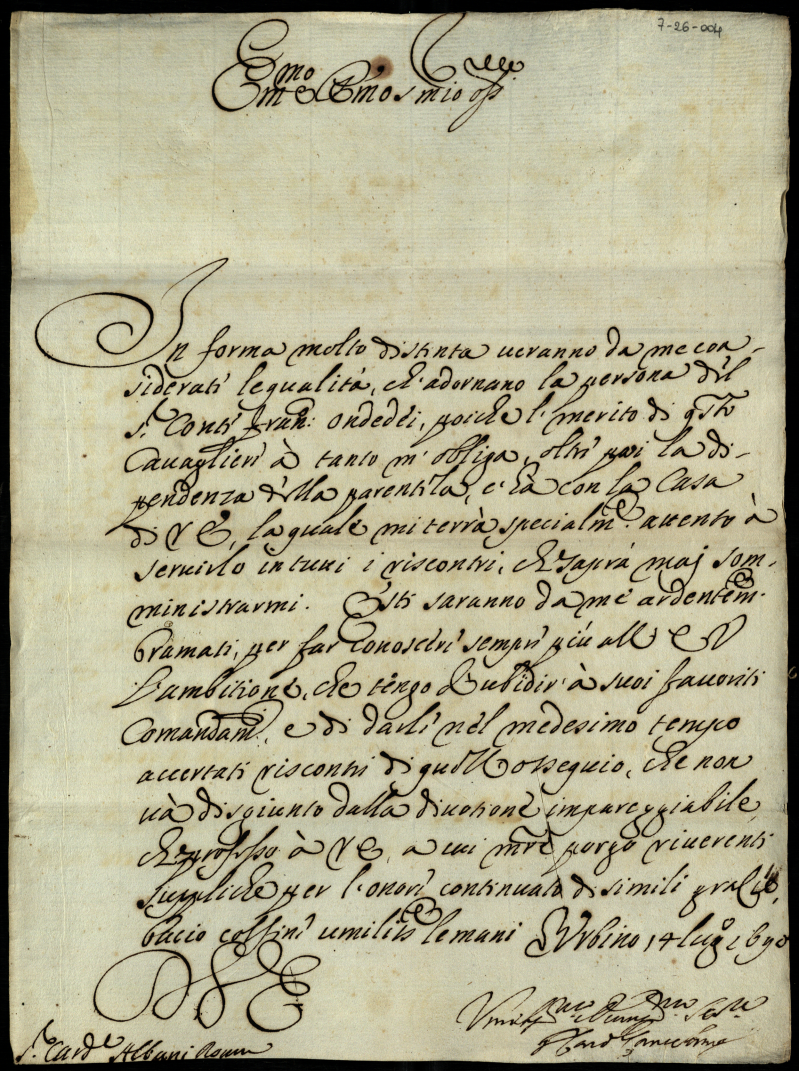 7-26-004
Emo e Rmo Sr mio oss
In forma molto distinta ueranno da me con-
siderati le qualità, ch'adornano la persona del
Sr. Conte Fran: Ondedei, poiche l'merito di qsto
Caualiere à tanto m'obliga, oltre poi la di-
pendenza della parentela, c'hà con la Casa
di VE, la quale mi terrà specialme. attento à
seruirlo in tutti i riscontri, che saprà maj som-
ministrarmi. Esti saranno da me ardentem.
bramati, per far conoscere sempre più all' EV
l'ambitione, che tengo d'ubidir à suoi fauoriti
Comandam.i, e di darle nel medesimo tempo
accertati riscontri di quell'ossequio, che non
uà disgiunto dalla diuotione impareggiabile,
che professo à VE, a cui mre porgo riuerenti
suppliche per l'onore continuato di simili gratie,
bacio col fine umilise le mani Vrbino, 14 lugo 1690
DVE
Sr. Carde Albani Roma